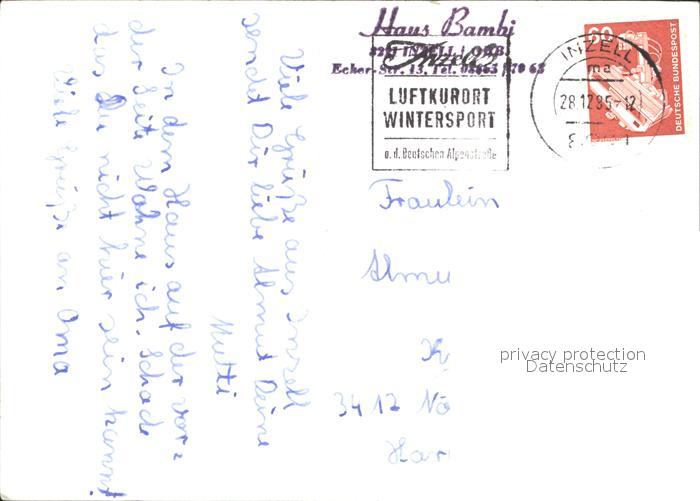 Haus Bambi
8221 INZELL / OBB.
Ecker-Str. 13, Tel. 08665 / 70 63
Inzell
LUFTKURORT
WINTERSPORT
a.d. Deutschen Alpenstraße
INZELL
28.12.85-12
60
DEUTSCHE BUNDESPOST
Viele Grüße aus Inzell
sendet Dir liebe Almut Deine
Mutti
In dem Haus auf der Vor=
der Seite wohne ich. Schade
das Du nicht hier sein kannst
Viele Grüße an Oma
Fräulein
Almu
K
3412 Nö
Har
privacy protection
Datenschutz